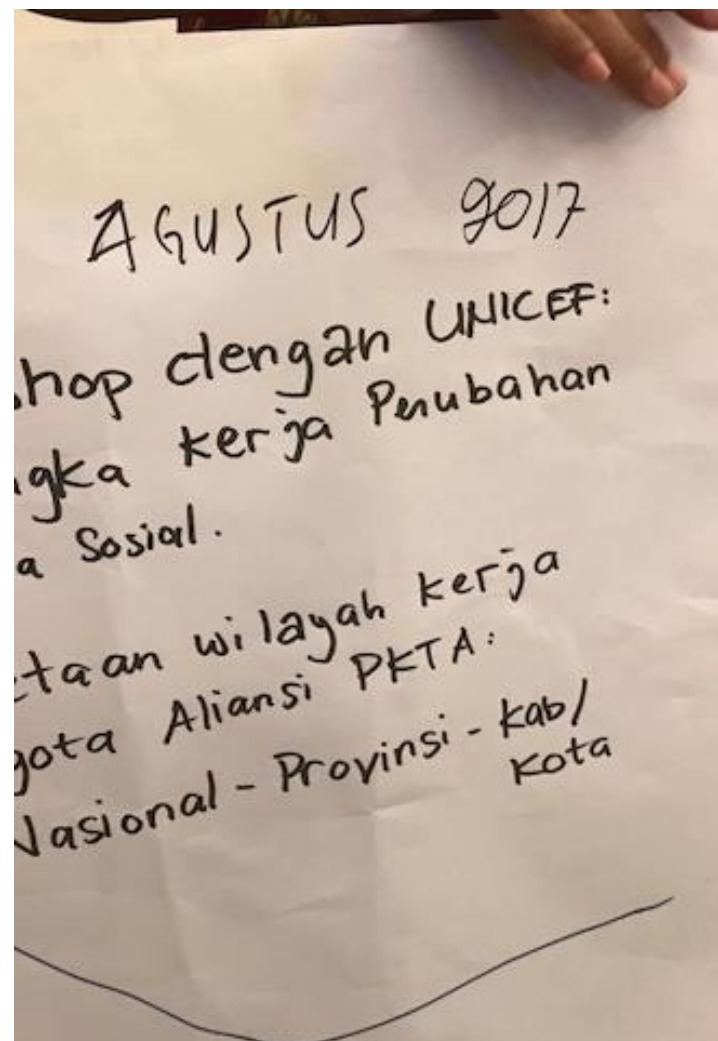 AGUSTUS 2017
shop dengan UNICEF:
ngka kerja Perubahan
a Sosial.
etaan wilayah kerja
gota Aliansi PKTA:
Nasional - Provinsi - Kab/
Kota